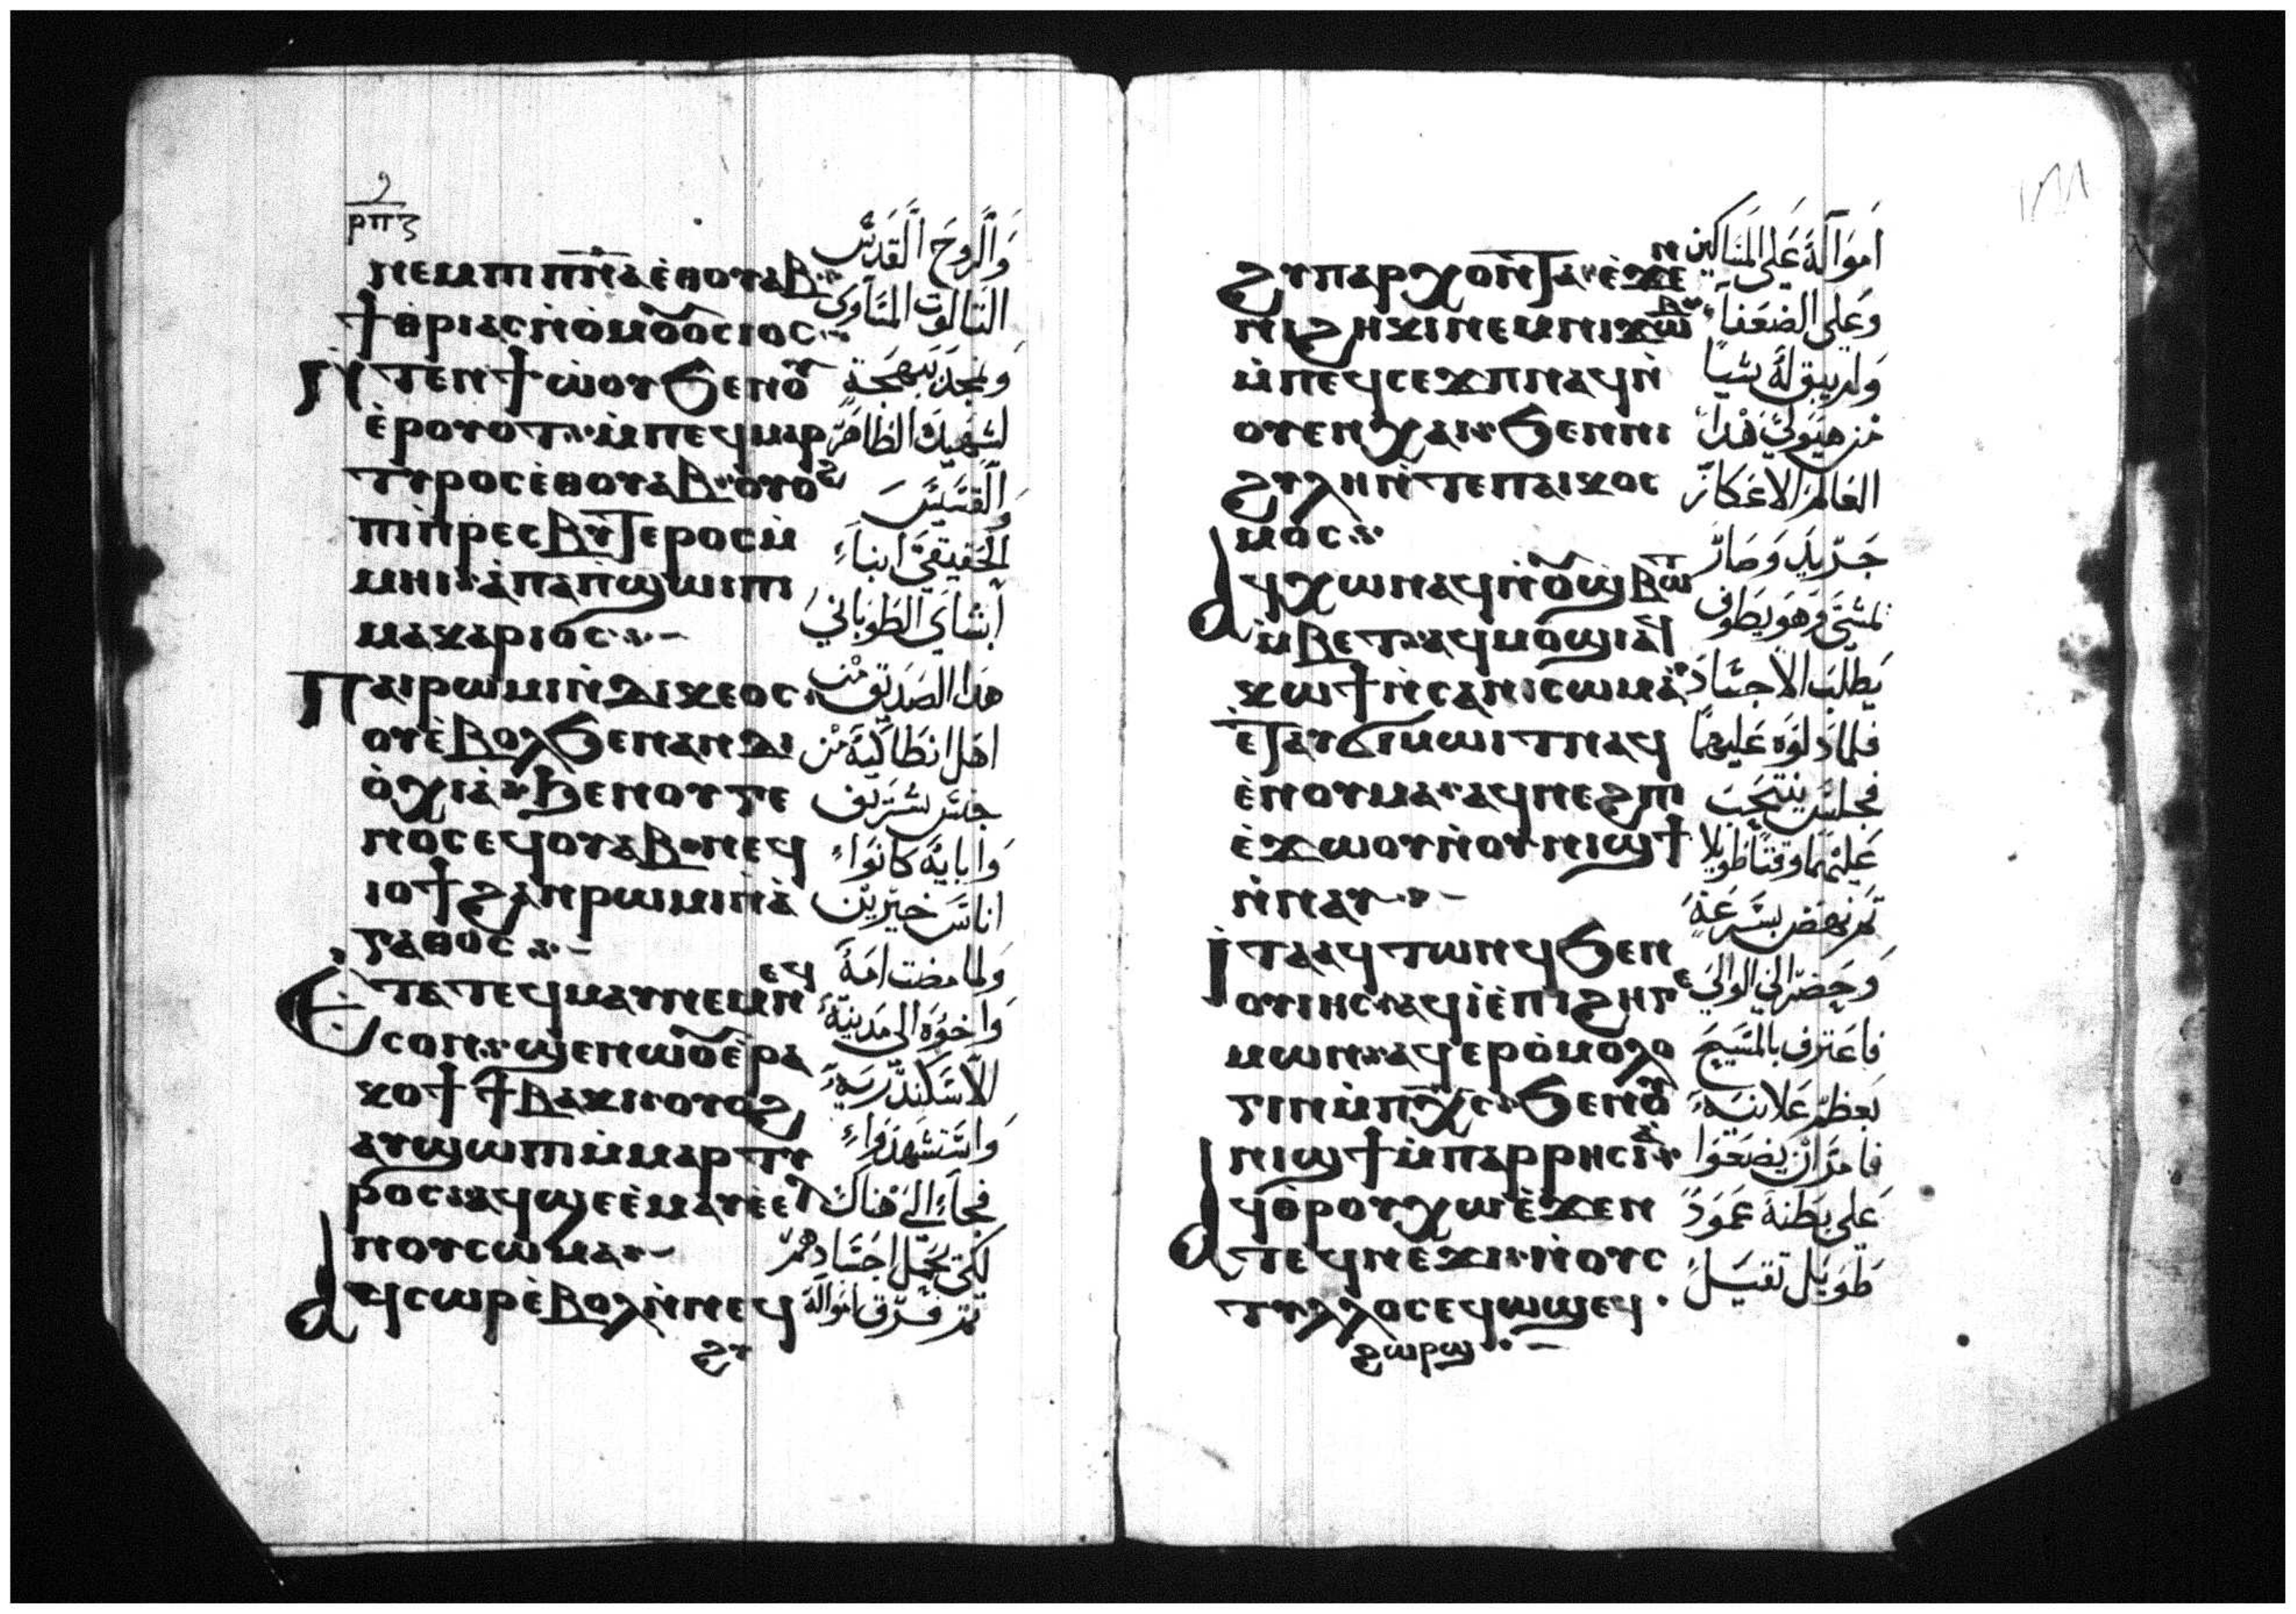 ⲣⲡⲍ
ⲛⲉⲙⲡⲓⲡ̅ⲛ̅ⲁ̅ⲉ̀ⲑⲟⲩⲁⲃ
ϯⲑⲣⲓⲁⲥⲛ̀ⲟ̀ⲙⲟⲟⲥⲓⲟⲥ
ⲧⲉⲛϯⲱ̀ⲟⲩϧⲉⲛⲟⲩ
ⲉ̀ⲣⲟⲩⲟⲧ ⲙ̀ⲡⲉϥⲙⲁⲣ
ⲧⲩⲣⲟⲥⲉ̀ⲑⲟⲩⲁⲃ ⲟⲩⲟϩ
ⲡⲓⲡ̀ⲣⲉⲥⲃⲩⲧⲉⲣⲟⲥⲙ̀
ⲙⲏⲓ ⲁ̀ⲡⲁⲡϣⲱⲓⲡⲓ
ⲙⲁⲕⲁⲣⲓⲟⲥ
ⲡⲁⲓⲣⲱⲙⲓⲛ̀ⲇⲓⲕⲉⲟⲥ
ⲟⲩⲉ̀ⲃⲟⲗϧⲉⲛⲁⲛⲇⲓ
ⲟ̀ⲭⲓⲁ̀ ϧⲉⲛⲟⲩⲅⲉ
ⲛⲟⲥⲉϥⲟⲩⲁⲃ ⲛⲉϥ
ⲓⲟϯϩⲁⲛⲣⲱⲙⲓⲛ̀ⲁ̀
ⲅⲁⲑⲟⲥ
ⲉⲧⲁⲧⲉϥⲙⲁⲩⲛⲉⲙⲛⲉϥ
ⲥⲟⲛ ϣⲉⲛⲱⲟⲩⲉ̀ⲣⲁ
ⲕⲟϯϯⲃⲁⲕⲓ ⲟⲩⲟϩ
ⲁⲩϣⲱⲡⲓⲙ̀ⲙⲁⲣⲧⲩ
ⲣⲟⲥ ⲁϥϣⲉⲉ̀ⲙⲁⲩⲉ̀ⲉⲗ
ⲛⲟⲩⲥⲱⲙⲁ
ⲁϥⲥⲱⲣⲉ̀ⲃⲟⲗⲛ̀ⲛⲉϥ
ϩⲩ
والروح القدس
الثالوت المساوى
ونمجد ببهجة
لشهيدك الظاهر
والقسيس
الحقيقى انباء
ابشاى الطوباني
هدا الصديق من
اهل انطاكية من
جنس شريف
وابايه كانواء
اناس خيرين
ولما مضت امه
واخوه الى مدينة
الاسكندريه
واستشهدواء
فجاء الى هناك
لكى يحمل اجسادهم
تم فرق امواله
ϩⲩⲡⲁⲣⲭⲟⲛⲧⲁ ⲉ̀ϫⲉⲛ
ⲛⲓϩⲏⲕⲓⲛⲉⲙⲛⲓϫⲱⲃ
ⲙ̀ⲡⲉϥⲥⲉϫⲡⲛⲁϥⲛ̀
ⲟⲩⲉⲛⲭⲁⲓ ϧⲉⲛⲛⲓ
ϩⲩⲗⲏⲛ̀ⲧⲉⲡⲁⲓⲕⲟⲥ
ⲙⲟⲥ
ⲁϥⲭⲱⲛⲁϥⲛ̀ⲟⲩϣⲃⲱⲧ
ⲙ̀ⲃⲉⲧ ⲁϥⲙⲟϣⲓⲁϥ
ⲕⲱϯⲛ̀ⲥⲁⲛⲓⲥⲱⲙⲁ
ⲉ̀ⲧⲁⲩϭⲓⲙⲱⲓⲧⲛⲁϥ
ⲉ̀ⲛⲟⲩⲙⲁ ⲁϥⲛⲉϩⲡⲓ
ⲉ̀ϫⲱⲟⲩⲛ̀ⲟⲩⲛⲓϣϯ
ⲛ̀ⲛⲁⲩ
ⲓⲧⲁⲁϥⲧⲱⲛϥϧⲉⲛ
ⲟⲩⲓⲏⲥ ⲁϥⲓ̀ⲉ̀ⲡⲓϩⲏⲅⲉ
ⲙⲱⲛ ⲁϥⲉⲣⲟ̀ⲙⲟⲗⲟ
ⲅⲓⲛⲙ̀ⲡⲭ̅ⲥ̅ ϧⲉⲛⲟⲩ
ⲛⲓϣϯⲙ̀ⲡⲁⲣⲣⲏⲥⲓⲁ̀
ⲁϥⲑ̀ⲣⲟⲩⲭⲱⲉ̀ϫⲉⲛ
ⲧⲉϥⲛⲉϫⲓ ⲛ̀ⲟⲩⲥ
ⲧⲩⲗⲗⲟⲥⲉϥϣϣⲉϥ
ϩⲱⲣϣ
١٨٨
امواله على المساكين
وعلى الضعفاء
ولم يبق له شيا
من هيولي هدا
العالم الا عكاز
جريد وصار
تمشى وهو يطوف
يطلب الاجساد
فلما دلوه عليهما
فجلس ينتحب
عليهما وقتا طويلا
تم نهض بسرعة
وحضر الى الوالي
فاعترف بالمسيح
بعظم علانيه
فامر ان يضعوا
على بطنه عمود
طويل تقيل